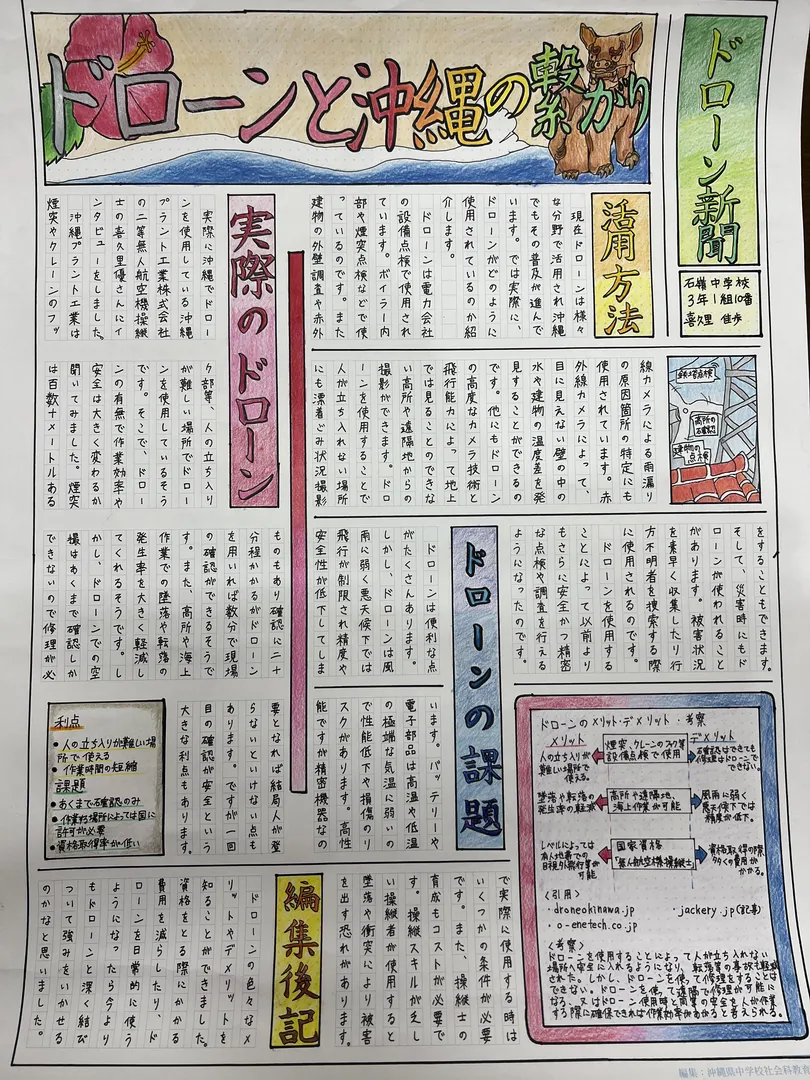 ドローン新聞
石嶺中学校
3年1組10番
喜久里 佳歩
ドローンと沖縄の繋がり
活用方法
現在ドローンは様々
な分野で活用され沖縄
でもその普及が進んで
います。では実際に、
ドローンがどのように
使用されているのか紹
介します。
ドローンは電力会社
の設備点検で使用され
ています。ボイラー内
部や煙突点検などで使
っているのです。また
建物の外壁調査や赤外
鉄塔点検
高所の
確認
建物の
点検
線カメラによる雨漏り
の原因箇所の特定にも
使用されています。赤
外線カメラによって、
目に見えない壁の中の
水や建物の温度差を発
見することができるの
です。他にもドローン
の高度なカメラ技術と
飛行能力によって地上
では見ることのできな
い高所や遠隔地からの
撮影ができます。ドロ
ーンを使用することで
人が立ち入れない場所
にも漂着ごみ状況撮影
をすることもできます。
そして、災害時にもド
ローンが使われること
があります。被害状況
を素早く収集したり行
方不明者を捜索する際
に使用されるのです。
ドローンを使用する
ことによって以前より
もさらに安全かつ精密
な点検や調査を行える
ようになったのです。
ドローンの課題
ドローンは便利な点
がたくさんあります。
しかし、ドローンは風
雨に弱く悪天候下では
飛行が制限され精度や
安全性が低下してしま
います。バッテリーや
電子部品は高温や低温
の極端な気温に弱いの
で性能低下や損傷のリ
スクがあります。高性
能ですが精密機器なの
で実際に使用する時は
いくつかの条件が必要
です。また、操縦士の
育成もコストが必要で
す。操縦スキルが乏し
い操縦者が使用すると
墜落や衝突により被害
を出す恐れがあります。
実際のドローン
実際に沖縄でドロー
ンを使用している沖縄
プラント工業株式会社
の二等無人航空機操縦
士の喜久里優さんにイ
ンタビューをしました。
沖縄プラント工業は
煙突やクレーンのフッ
ク部等、人の立ち入り
が難しい場所でドロー
ンを使用しているそう
です。そこで、ドロー
ンの有無で作業効率や
安全は大きく変わるか
聞いてみました。煙突
は百数十メートルある
ものもあり確認に二十
分程かかるがドローン
を用いれば数分で現場
の確認ができるそうで
す。また、高所や海上
作業での墜落や転落の
発生率を大きく軽減し
てくれるそうです。し
かし、ドローンでの空
撮はあくまで確認しか
できないので修理が必
要となれば結局人が登
らないといけない点も
あります。ですが一回
目の確認が安全という
大きな利点もあります。
利点
•人の立ち入りが難しい場
所で使える
•作業時間の短縮
課題
•あくまで確認のみ
•作業する場所によっては国に
許可が必要
•資格取得率が低い
編集後記
ドローンの色々なメ
リットやデメリットを
知ることができました。
資格をとる際にかかる
費用を減らしたり、ド
ローンを日常的に使う
ようになったら今より
もドローンと深く結び
ついて強みをいかせる
のかなと思いました。
ドローンのメリット・デメリット・考察
メリット
デメリット
人の立ち入りが
難しい場所で
使える。
煙突、クレーンのフック等
設備点検で使用
確認はできても
修理はドローンで
できない。
墜落や転落の
発生率の軽減
高所や遠隔地、
海上作業が可能
風雨に弱く
悪天候下では
精度が低下。
レベルによっては
有人地帯での
目視外飛行等が
可能
国家資格
「無人航空機操縦士」
資格取得の際
多くの費用が
かかる。
〈引用〉
・droneokinawa.jp
・jackery.jp(記事)
・o-enetech.co.jp
〈考察〉
ドローンを使用することによって人が立ち入れない
場所へ安全に入れるようになり、転落等の事故も軽減
された。しかし、ドローンを使って修理をすることは
できない。ドローンを使って遠隔で修理が可能に
なる、又はドローン使用時と同等の安全を人が作業
する際に確保できれば作業効率があがると考えられる。
編集：沖縄県中学校社会科教育